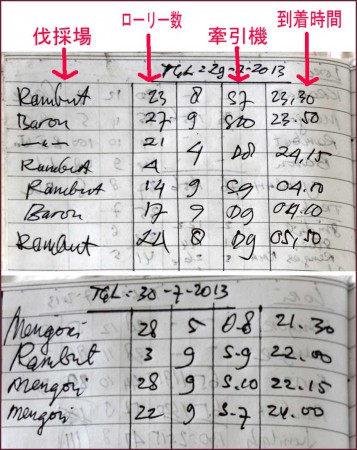 伐採場 ローリー数 牽引機 到着時間
TGL = 29-7-2013
Rambut 23 8 S7 23,30
Baron 27 9 S10 23.50
21
Rambut 4 4 D8 24,15
Rambut 14 9 S9 04.10
Baron 17 9 D9 04.10
Rambut 24 8 D9 05,50
TGL = 30-7-2013
Mengori 28 5 D.8 21.30
Rambut 3 9 S.9 22.00
Mengori 28 9 S.10 22.15
Mengori 22 9 S-7 24.00